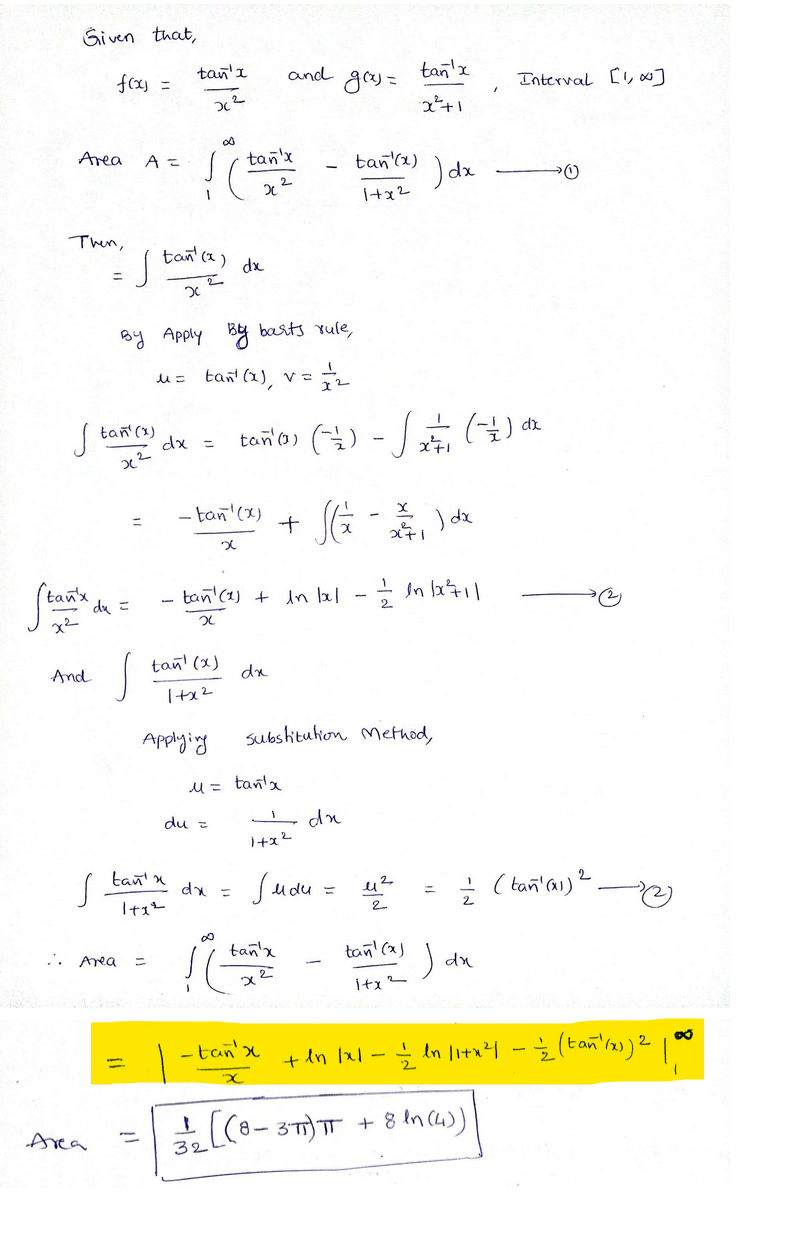 Given that,
f(x) = tan⁻¹x / x² and g(x) = tan⁻¹x / x²+1 , Interval [1, ∞]
Area A = ∫₁^∞ ( tan⁻¹x / x² - tan⁻¹(x) / 1+x² ) dx ⟶ ①
Then,
= ∫ tan⁻¹(x) / x² dx
By Apply By barts rule,
u = tan⁻¹(x), v = 1/x²
∫ tan⁻¹(x) / x² dx = tan⁻¹(x) (-1/x) - ∫ 1/x²+1 (-1/x) dx
= -tan⁻¹(x) / x + ∫( 1/x - x/x²+1 ) dx
∫ tan⁻¹x / x² dx = - tan⁻¹(x) / x + ln |x| - 1/2 ln |x²+1| ⟶ ②
And ∫ tan⁻¹(x) / 1+x² dx
Applying substitution Method,
u = tan⁻¹x
du = 1 / 1+x² dx
∫ tan⁻¹x / 1+x² dx = ∫ u du = u²/2 = 1/2 (tan⁻¹(x))² ⟶ ②
∴ Area = ∫₁^∞ ( tan⁻¹x / x² - tan⁻¹(x) / 1+x² ) dx
= | -tan⁻¹x / x + ln |x| - 1/2 ln |1+x²| - 1/2 (tan⁻¹(x))² |₁^∞
Area = 1/32 [(8-3π)π + 8 ln(4))